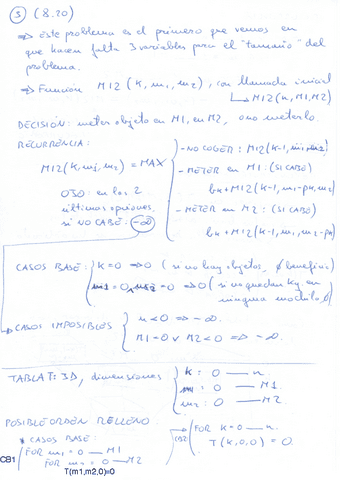 5 (8.20)
⇒ Este problema es el primero que vemos en
que hacen falta 3 variables para el "tamaño" del
problema.
⇒ Función M12 (k, m1, m2), con llamada inicial
↳ M12(n, M1, M2)
DECISIÓN: meter objeto en M1, en M2, o no meterlo.
RECURRENCIA:
- NO COGER: M12(k-1, m1, m2)
M12(k, m1, m2) = MAX
- METER en M1: (SI CABE)
bk + M12(k-1, m1-pk, m2)
OJO: en las 2
últimas opciones,
si NO CABE: -∞
- METER en M2: (SI CABE)
bk + M12(k-1, m1, m2-pk)
CASOS BASE: k=0 ⇒ 0 (si no hay objetos, ∅ beneficio)
m1=0 ∧ m2=0 ⇒ 0 (si no quedan Kg. en
ningun modulo, ∅)
→ CASOS IMPOSIBLES
k<0 ⇒ -∞.
M1<0 ∨ M2<0 ⇒ -∞.
TABLA T: 3D, dimensiones
k: 0 — n.
m1: 0 — M1.
m2: 0 — M2.
POSIBLE ORDEN RELLENO.
* CASOS BASE:
CB1
FOR m1 = 0 — M1
FOR m2 = 0 — M2
T(m1,m2,0)=0
CB2
FOR k=0 — n.
T(k,0,0) = 0.